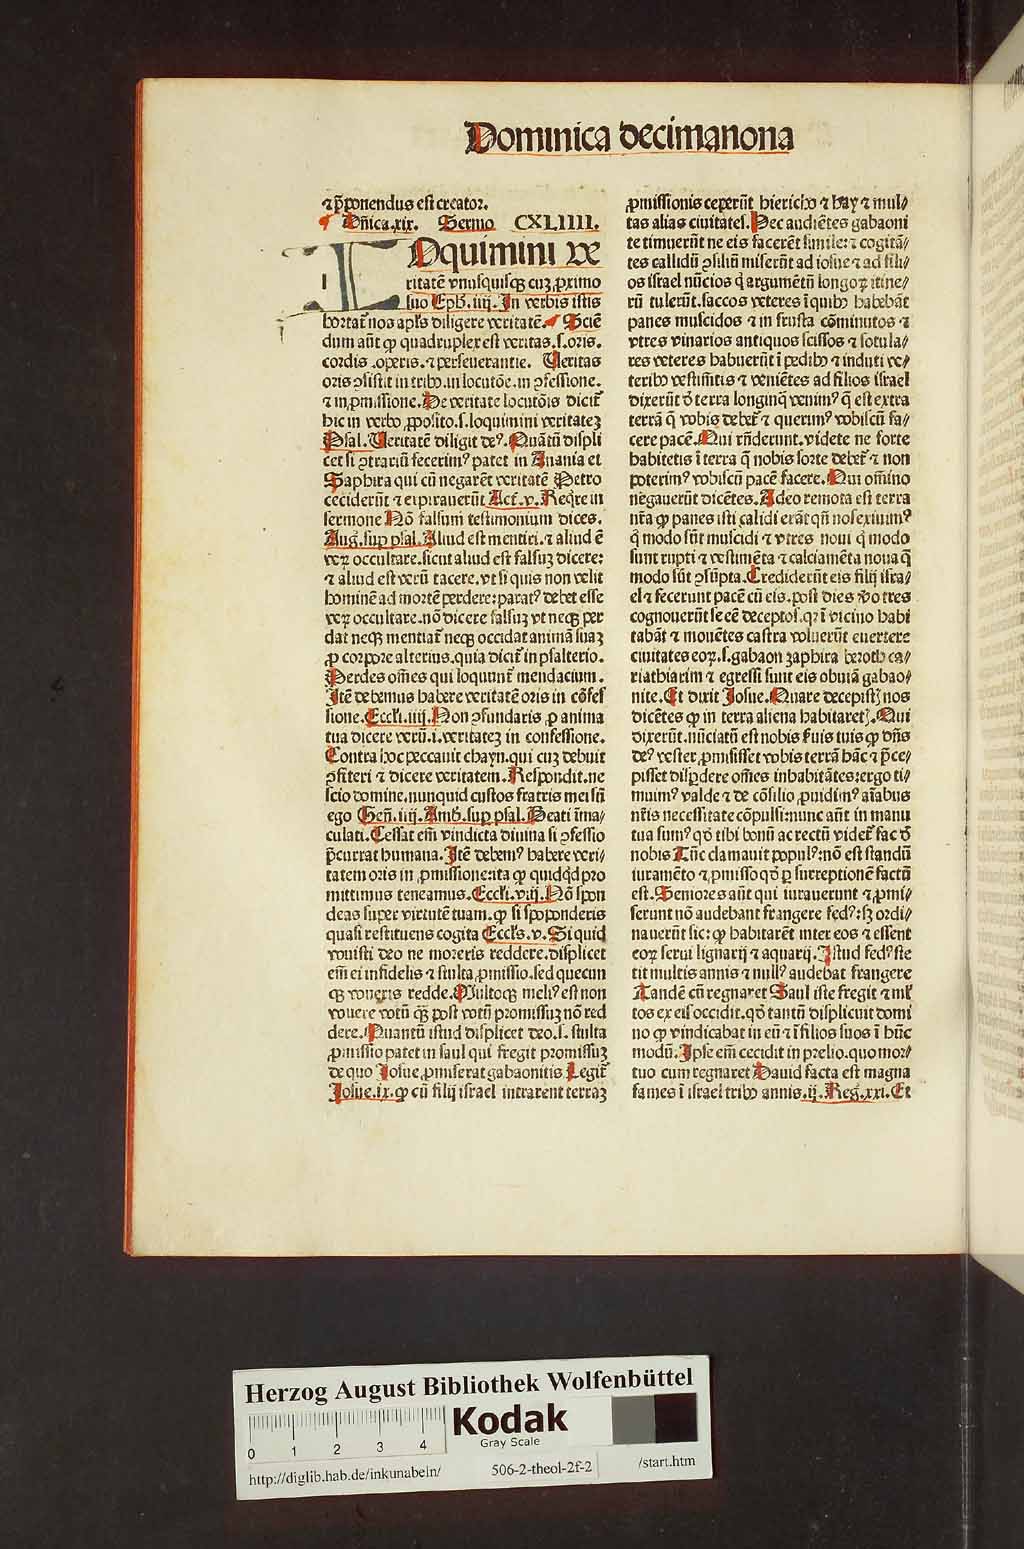 Dominica decimanona
⁊ p̄ponendus est creator.
Dñica.xix. Sermo CXLIIII.
LOquimini ve
ritatē vnusquisqꝫ cuꝫ ꝓximo
suo Eph̄. iiij. In verbis istis
hortat᷑ nos apl̄s diligere veritatē. Sciē
dum aūt ꝙ quadruplex est veritas.s.oris.
cordis .operis. ⁊ perseuerantie. Ueritas
oris ꝯsistit in tribꝰ.in locutōe.in ꝯfessione.
⁊ in ꝓmissione. De veritate locutōis dicit᷑
hic in verbo ꝓposito.s.loquimini veritateꝫ
Psal. Ueritatē diligit deꝰ. Quātū displi
cet si ꝯtrariū fecerimꝰ patet in Anania et
Saphira qui cū negarēt veritatē Petro
ceciderūt ⁊ expirauerūt Act̄. v. Reqͥre in
sermone Nō falsum testimonium dices.
Aug. sup psal. Aliud est mentiri. ⁊ aliud ē
veꝝ occultare. sicut aliud est falsuꝫ dicere:
⁊ aliud est verū tacere. vt si quis non velit
hominē ad mortē perdere: paratꝰ debet esse
veꝝ occultare. nō dicere falsuꝫ vt neqꝫ per
dat neqꝫ mentiat᷑ neqꝫ occidat animā suaꝫ
ꝓ corpore alterius. quia dicit᷑ in psalterio.
Perdes om̄es qui loquunt᷑ mendacium.
Itē debemus habere veritatē oris in cōfes
sione. Eccl̄i. iiij. Non ꝯfundaris ꝓ anima
tua dicere verū.i.veritateꝫ in confessione.
Contra hoc peccauit chayn. qui cuꝫ debuit
ꝯfiteri ⁊ dicere veritatem. Respondit. ne
scio domine. nunquid custos fratris mei sū
ego Geñ. iiij. Amb̄. sup psal. Beati īma⸗
culati. Cessat em̄ vindicta diuina si ꝯfessio
p̄currat humana. Itē debemꝰ habere veri⸗
tatem oris in ꝓmissione: ita ꝙ quidqͥd pro
mittimus teneamus. Eccl̄i. viij. Nō spon
deas super virtutē tuam. ꝙ si spoponderis
quasi restituens cogita Eccl̄s. v. Si quid
vouisti deo ne moreris reddere. displicet
em̄ ei infidelis ⁊ stulta ꝓmissio. sed quecun
qꝫ voueris redde. Multoqꝫ meliꝰ est non
vouere votū qͣꝫ post votū promissuꝫ nō red
dere. Quantū istud displicet deo.s. stulta
ꝓmissio patet in saul qui fregit promissuꝫ
de quo Iosue ꝓmiserat gabaonitis Legit᷑
Iosue. ix. ꝙ cū filij israel intrarent terraꝫ
ꝓmissionis ceperūt hiericho ⁊ hay ⁊ mul⸗
tas alias ciuitates. Hec audiētes gabaoni
te timuerūt ne eis facerēt simile: ⁊ cogitā⸗
tes callidū ꝯsiliū miserūt ad iosue ⁊ ad fili⸗
os israel nūcios qͥ argumētū longoꝝ itine⸗
rū tulerūt. saccos veteres ī quibꝰ habebāt
panes muscidos ⁊ in frusta cōminutos ⁊
vtres vinarios antiquos scissos ⁊ sotula⸗
res veteres habuerūt ī pedibꝰ ⁊ induti ve⸗
teribꝰ vestim̄tis ⁊ veniētes ad filios israel
dixerūt ō terra longinq̄ venimꝰ q̄ est extra
terrā q̄ vobis debet᷑ ⁊ querimꝰ vobiscū fa⸗
cere pacē. Qui rn̄derunt. videte ne forte
habitetis ī terra q̄ nobis sorte debet᷑ ⁊ non
poterimꝰ vobiscū pacē facere. Qui om̄ino
negauerūt dicētes. Adeo remota est terra
nr̄a ꝙ panes isti calidi erāt qn̄ nos exiuimꝰ
qͥ modo sūt muscidi ⁊ vtres noui qͥ modo
sunt rupti ⁊ vestimēta ⁊ calciamēta noua q̄
modo sūt ꝯsūpta. Crediderūt eis filij isra⸗
el ⁊ fecerunt pacē cū eis. post dies vō tres
cognouerūt se eē deceptos. qꝛ ī vicino habi
tabāt ⁊ mouētes castra voluerūt euertere
ciuitates eoꝝ.s.gabaon zaphira beroth ca⸗
riathiarim ⁊ egressi sunt eis obuiā gabao⸗
nite. Et dixit Iosue. Quare decepistꝭ nos
dicētes ꝙ in terra aliena habitaretꝭ. Qui
dixerūt. nūciatū est nobis suis tuis ꝙ dn̄s
deꝰ vester ꝓmisisset vobis terrā hāc ⁊ p̄ce⸗
pisset disꝑdere om̄es inhabitātes: ergo ti⸗
muimꝰ valde ⁊ de cōsilio ꝓuidimꝰ aīabus
nr̄is necessitate cōpulsi: nunc aūt in manu
tua sumꝰ qd̄ tibi bonū ac rectū videt᷑ fac ō
nobis Tūc clamauit populꝰ: nō est standū
iuramēto ⁊ ꝓmisso qd̄ ꝑ surreptionē factū
est. Seniores aūt qui iurauerunt ⁊ ꝓmi⸗
serunt nō audebant frangere fedꝰ: sꝫ ordi⸗
nauerūt sic: ꝙ habitarēt inter eos ⁊ essent
eoꝝ serui lignarij ⁊ aquarij. Istud fedꝰ ste
tit multis annis ⁊ nullꝰ audebat frangere
Tandē cū regnaret Saul iste fregit ⁊ ml̄
tos ex eis occidit. qd̄ tantū displicuit domi
no ꝙ vindicabat in eū ⁊ ī filios suos ī hūc
modū. Ipse em̄ cecidit in prelio. quo mor⸗
tuo cum regnaret Dauid facta est magna
fames ī israel tribꝰ annis. ij. Reg. xxi. Et
Herzog August Bibliothek Wolfenbüttel
0 1 2 3 4
Kodak
Gray Scale
http://diglib.hab.de/inkunabeln/ 506-2-theol-2f-2 /start.htm